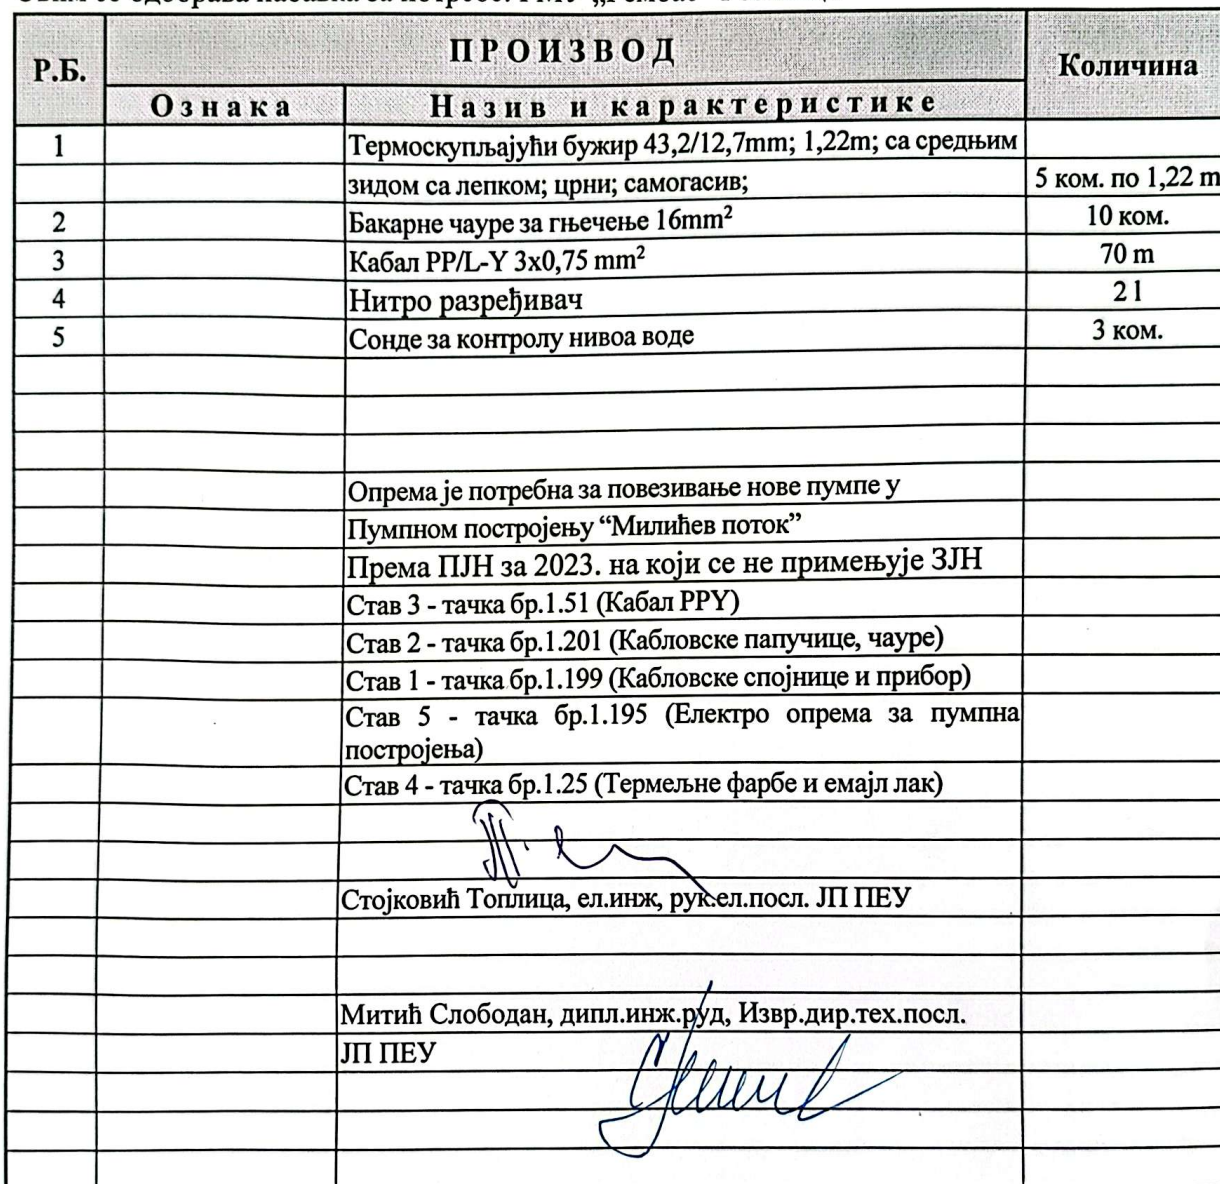 П Р О И З В О Д
Р.Б. Количина
О з н а к а Н а з и в и к а р а к т е р и с т и к е
1 Термоскупљајући бужир 43,2/12,7mm; 1,22m; са средњим
зидом са лепком; црни; самогасив; 5 ком. по 1,22 m
2 Бакарне чауре за гњечење 16mm² 10 ком.
3 Кабал PP/L-Y 3x0,75 mm² 70 m
4 Нитро разређивач 2 l
5 Сонде за контролу нивоа воде 3 ком.
Опрема је потребна за повезивање нове пумпе у
Пумпном постројењу “Милићев поток”
Према ПЈН за 2023. на који се не примењује ЗЈН
Став 3 - тачка бр.1.51 (Кабал PPY)
Став 2 - тачка бр.1.201 (Кабловске папучице, чауре)
Став 1 - тачка бр.1.199 (Кабловске спојнице и прибор)
Став 5 - тачка бр.1.195 (Електро опрема за пумпна
постројења)
Став 4 - тачка бр.1.25 (Термељне фарбе и емајл лак)
Стојковић Топлица, ел.инж, рук.ел.посл. ЈП ПЕУ
Митић Слободан, дипл.инж.руд, Извр.дир.тех.посл.
ЈП ПЕУ